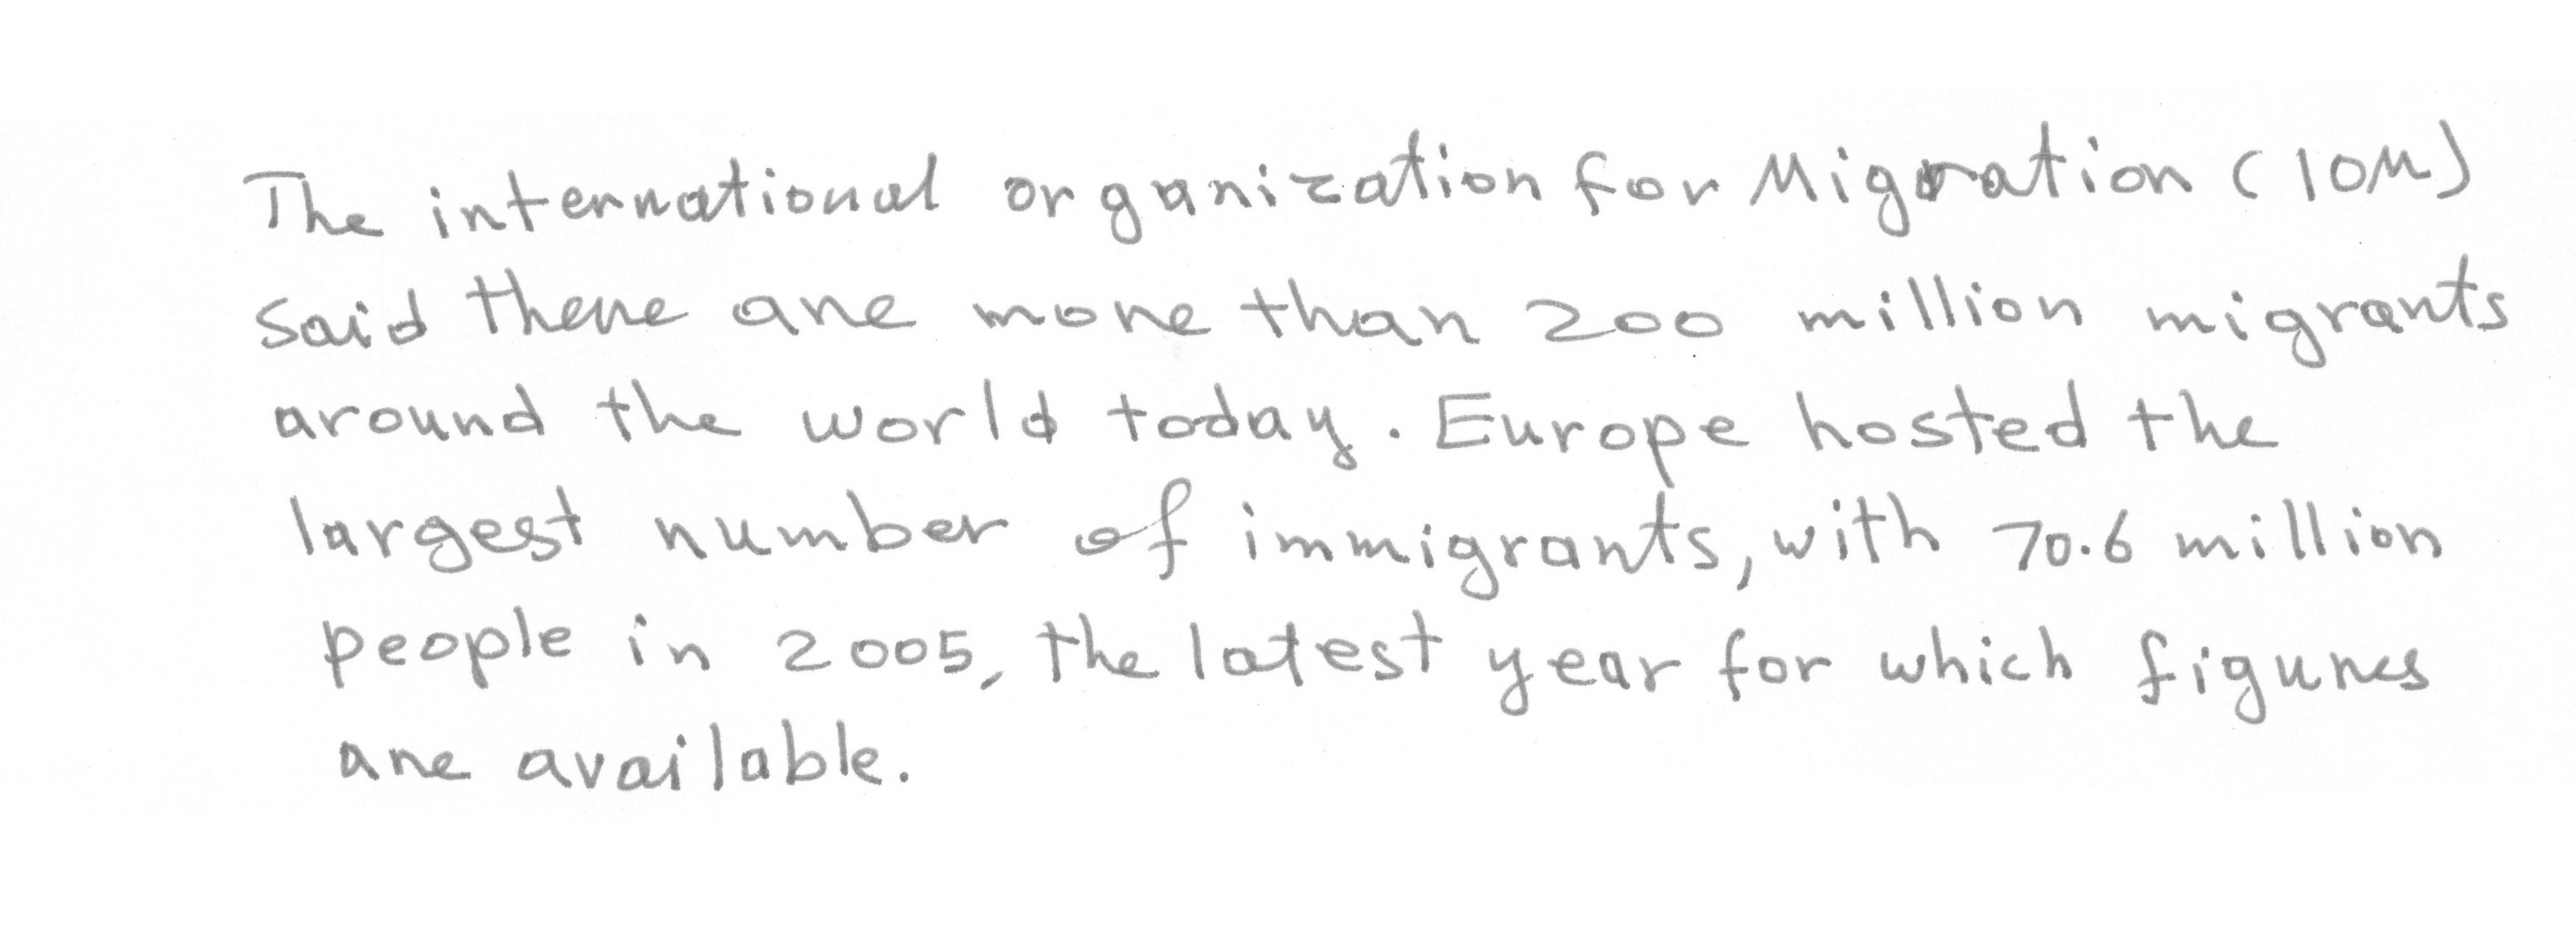 The international organization for Migration (IOM)
said there are more than 200 million migrants
around the world today. Europe hosted the
largest number of immigrants, with 70.6 million
people in 2005, the latest year for which figures
are available.